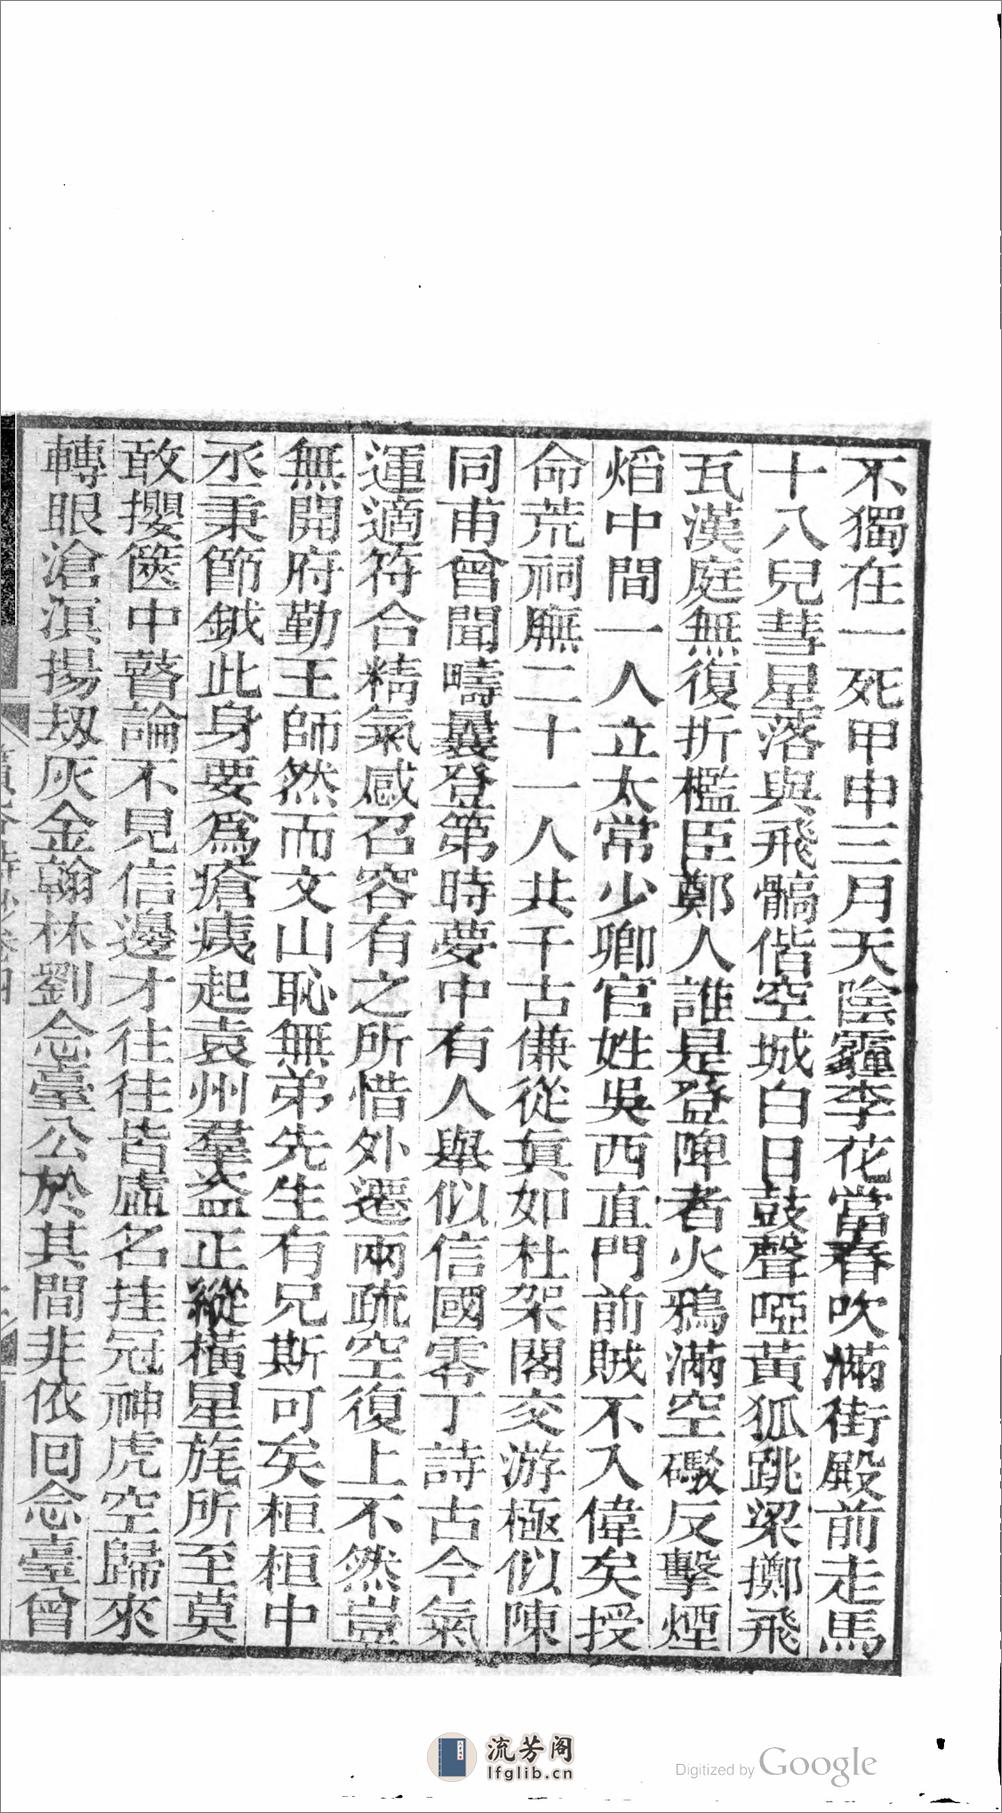 不獨在一死甲申三月天陰霾李花當春吹滿街殿前走馬
十八兒彗星落與飛髇偕空城白日鼓聲啞黃狐跳梁擲飛
瓦漢庭無復折檻臣鄭人誰是登陴者火鴉滿空礮反擊煙
焰中間一人立太常少卿官姓吳西直門前賊不入偉矣授
命荒祠廡二十一人共千古傔從眞如杜架閣交游極似陳
同甫曾聞疇曩登第時夢中有人舉似信國零丁詩古今氣
運適符合精氣感召容有之所惜外遷兩疏空復上不然豈
無開府勤王師然而文山恥無弟先生有兄斯可矣桓桓中
丞秉節鉞此身要爲瘡痍起袁州羣盜正縱橫星旄所至莫
敢攖篋中瞽論不見信邊才往往皆虛名挂冠神虎空歸來
轉眼滄溟揚刼灰金翰林劉念臺公於其間非依回念臺曾
流芳阁
lfglib.cn
Digitized by Google